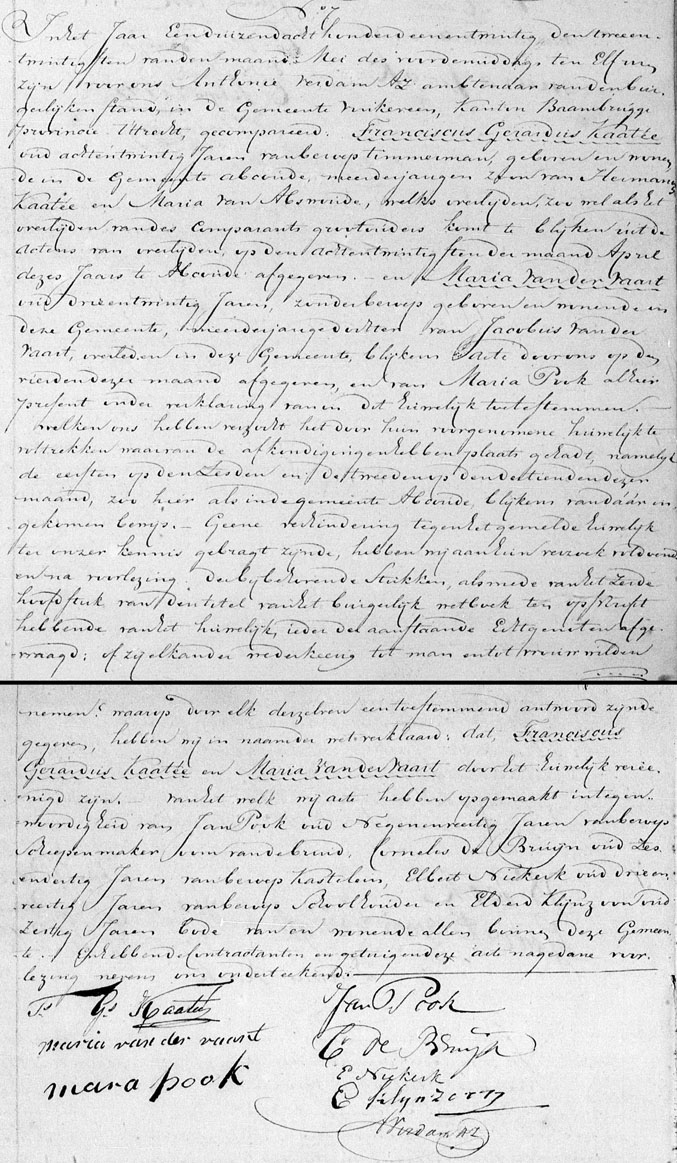 In het Jaar Eenduizend acht honderd een en twintig, den twee en
twintigsten van den maand Mei des voordemiddags ten Elf uren
zijn voor ons Anthonie Verdam AZ ambtenaar van den bur-
gerlijken stand, in de Gemeente Vinkeveen, Kanton Baambrugge
provincie Utrecht, gecompareerd: Franciscus Gerardus Kaatée
oud achtentwintig Jaren van beroep timmerman, geboren en wonen-
de in de Gemeente Abcoude, meerderjarigen zoon van Hermanus
Kaatée en Maria van Abswoude, welks overlijden, zoo wel als het
overlijden van des Comparants grootouders komt te blijken uit de
actens van overlijden, op den achtentwintigsten der maand April
dezes Jaars te Abcoude afgegeven. — en Maria van der Vaart
oud drieentwintig Jaren, zonder beroep geboren en wonende in
deze Gemeente, meerderjarige dochter van Jacobus van der
Vaart, overleden in deze Gemeente, blijkens acte door ons op den
vierden dezer maand afgegeven, en van Maria Pook alhier
present onder verklaring van in dit huwelijk toetestemmen. —
welken ons hebben verzocht het door hun voorgenomene huwelijk te
voltrekken waarvan de afkondigingen hebben plaats gehad, namelijk
de eersten op den Zesden en de tweeden op den dertienden dezer
maand, zoo hier als in de gemeente Abcoude, blijkens van dáár in-
gekomen bewijs. — Geene verhindering tegen het gemelde huwelijk
ter onzer kennis gebragt zijnde, hebben wij aan hun verzoek voldoende
en na voorlezing der bijbehorende Stukken, alsmede van het Zesde
hoofdstuk van den titel van het burgerlijk wetboek ten opschrift
hebbende van het huwelijk, ieder der aanstaande Echtgenoten afge-
vraagd: of zij elkander wederkeerig tot man en tot vrouw wilden
nemen? waarop door elk derzelven een toestemmend antwoord zijnde
gegeven, hebben wij in naam der wet verklaard: dat, Franciscus
Gerardus Kaatée en Maria van der Vaart door het huwelijk veree-
nigd zijn. — van het welk wij acte hebben opgemaakt in tegen-
woordigheid van Jan Pook oud Negenenveertig Jaren van beroep
Scheepenmaker oom van de bruid, Cornelis de Bruijn oud Zes
endertig Jaren van beroep Kastelein, Elbert Niekerk oud drieen
veertig Jaren van beroep Schoolhouder en Elderd Klijnzoon oud
Zestig Jaren bode van en wonende allen binnen deze Gemeen-
te. En hebben de Contractanten en getuigen deze acte na gedane voor-
lezing nevens ons onderteekend. —
Fs Gs Kaatée
Jan Pook
maria van der vaart
C de Bruijn
mara pook
E Niekerk
E klynzoon
Verdam AZ